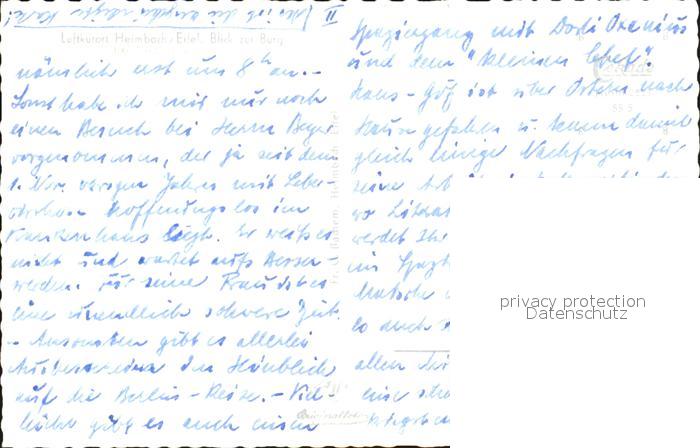 II
Luftkurort Heimbach/Eifel, Blick zur Burg
nämlich erst um 8 h an. -
Sonst habe ich mir nur noch
einen Besuch bei Herrn Beyer
vorgenommen, der ja seit dem
1. Nov. vorigen Jahres mit Leber-
hoffnungslos im
Krankenhaus liegt. Er weiß es
nicht und wartet aufs Besser-
werden. Für seine Frau ist es
eine unendlich schwere Zeit.
- Ansonsten gibt es allerlei
im Hinblick
auf die Berlin-Reise. - Viel-
leicht gibt es auch einen
Spaziergang mit
und dem "kleinen Chef".
Hans-Götz ist über Ostern nach
Hause gefahren u. kann damit
gleich einige Nachfragen für
seine
wo
werdet Ihr
ein
so auch
allen
eine
privacy protection
Datenschutz